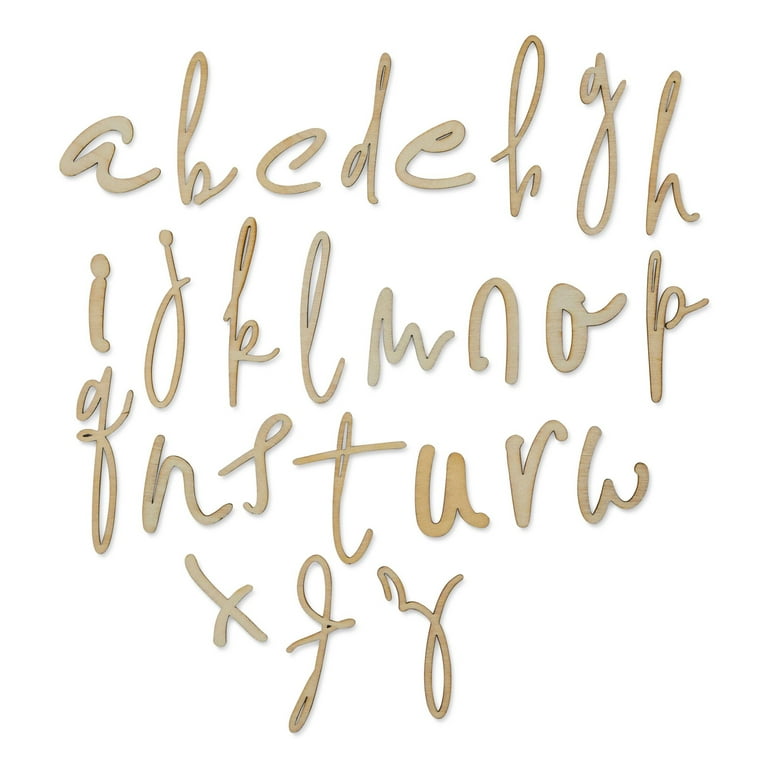 a b c d e h g h
i j k l m n o p
q n s t u r w
x f y